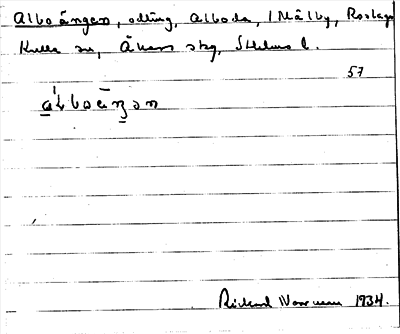 Alboängen, odling, Alboda, 1 Målby, Roslags
Kulla sn, Åkers skg, Sthlms l.
57
a̱'lboä̱ŋən
Rickard 1934.